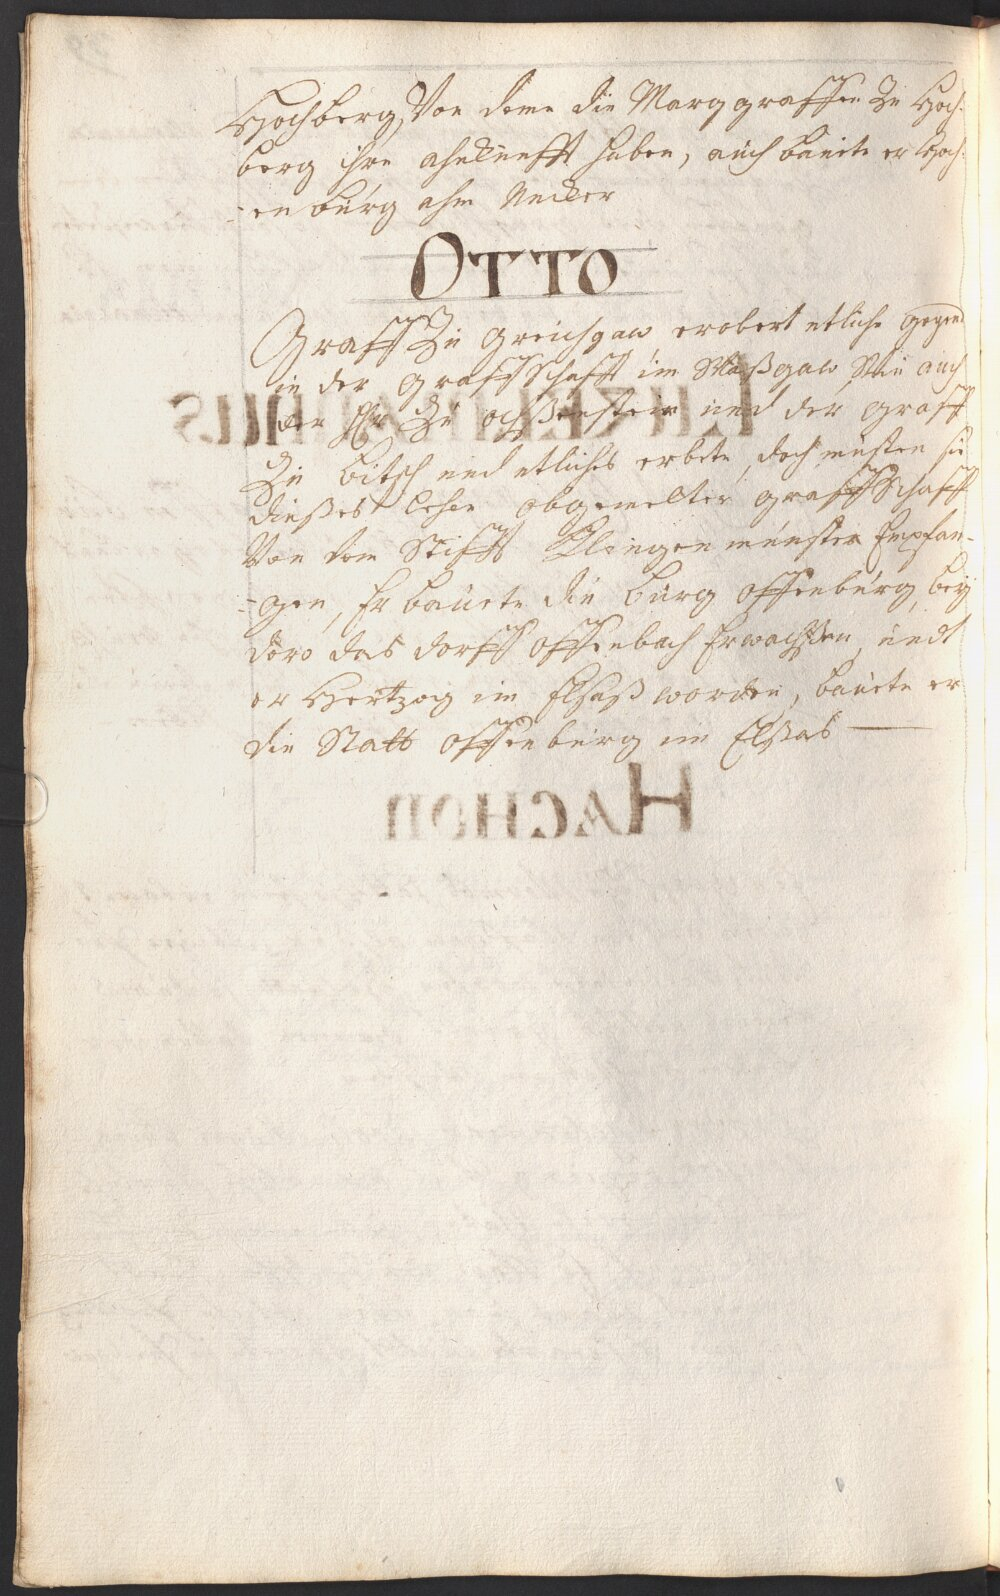 Hochberg, Von deme die Marggraffen Zu Hoch-
berg ihre ahnkunfft haben, auch bauete er Hoch-
-enburg ahm Necker
OTTO
Graff Zu Greichgaw erobert etliche gegend
in der Graffschafft im Waßgaw Wie auch
der Hr Zu ochßenstein und der Graff
Zu Bitsch und etliches erbete, doch musten sie
dießes lehen obgemelter graffschafft
Von dem Stifft Klingenmünster Empfan-
-gen, Er bauete die Burg offenburg, bey
dero das dorff offenbach Erwachßen, undt
er Hertzog im Elsaß worden, bauete er
die Statt offenburg im Elsas